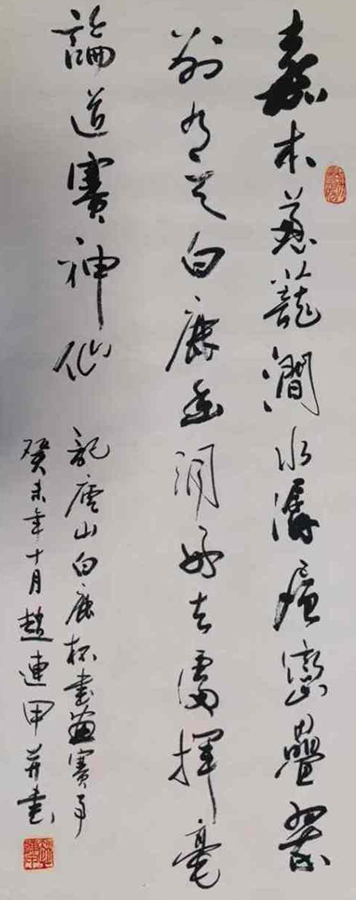 嘉木葱蘢澗水潺庐巒疊翠
别有天白鹿幽洞好去處揮毫
論道賽神仙
記廬山白鹿杯書畫賽事
癸未年十月趙連甲并書